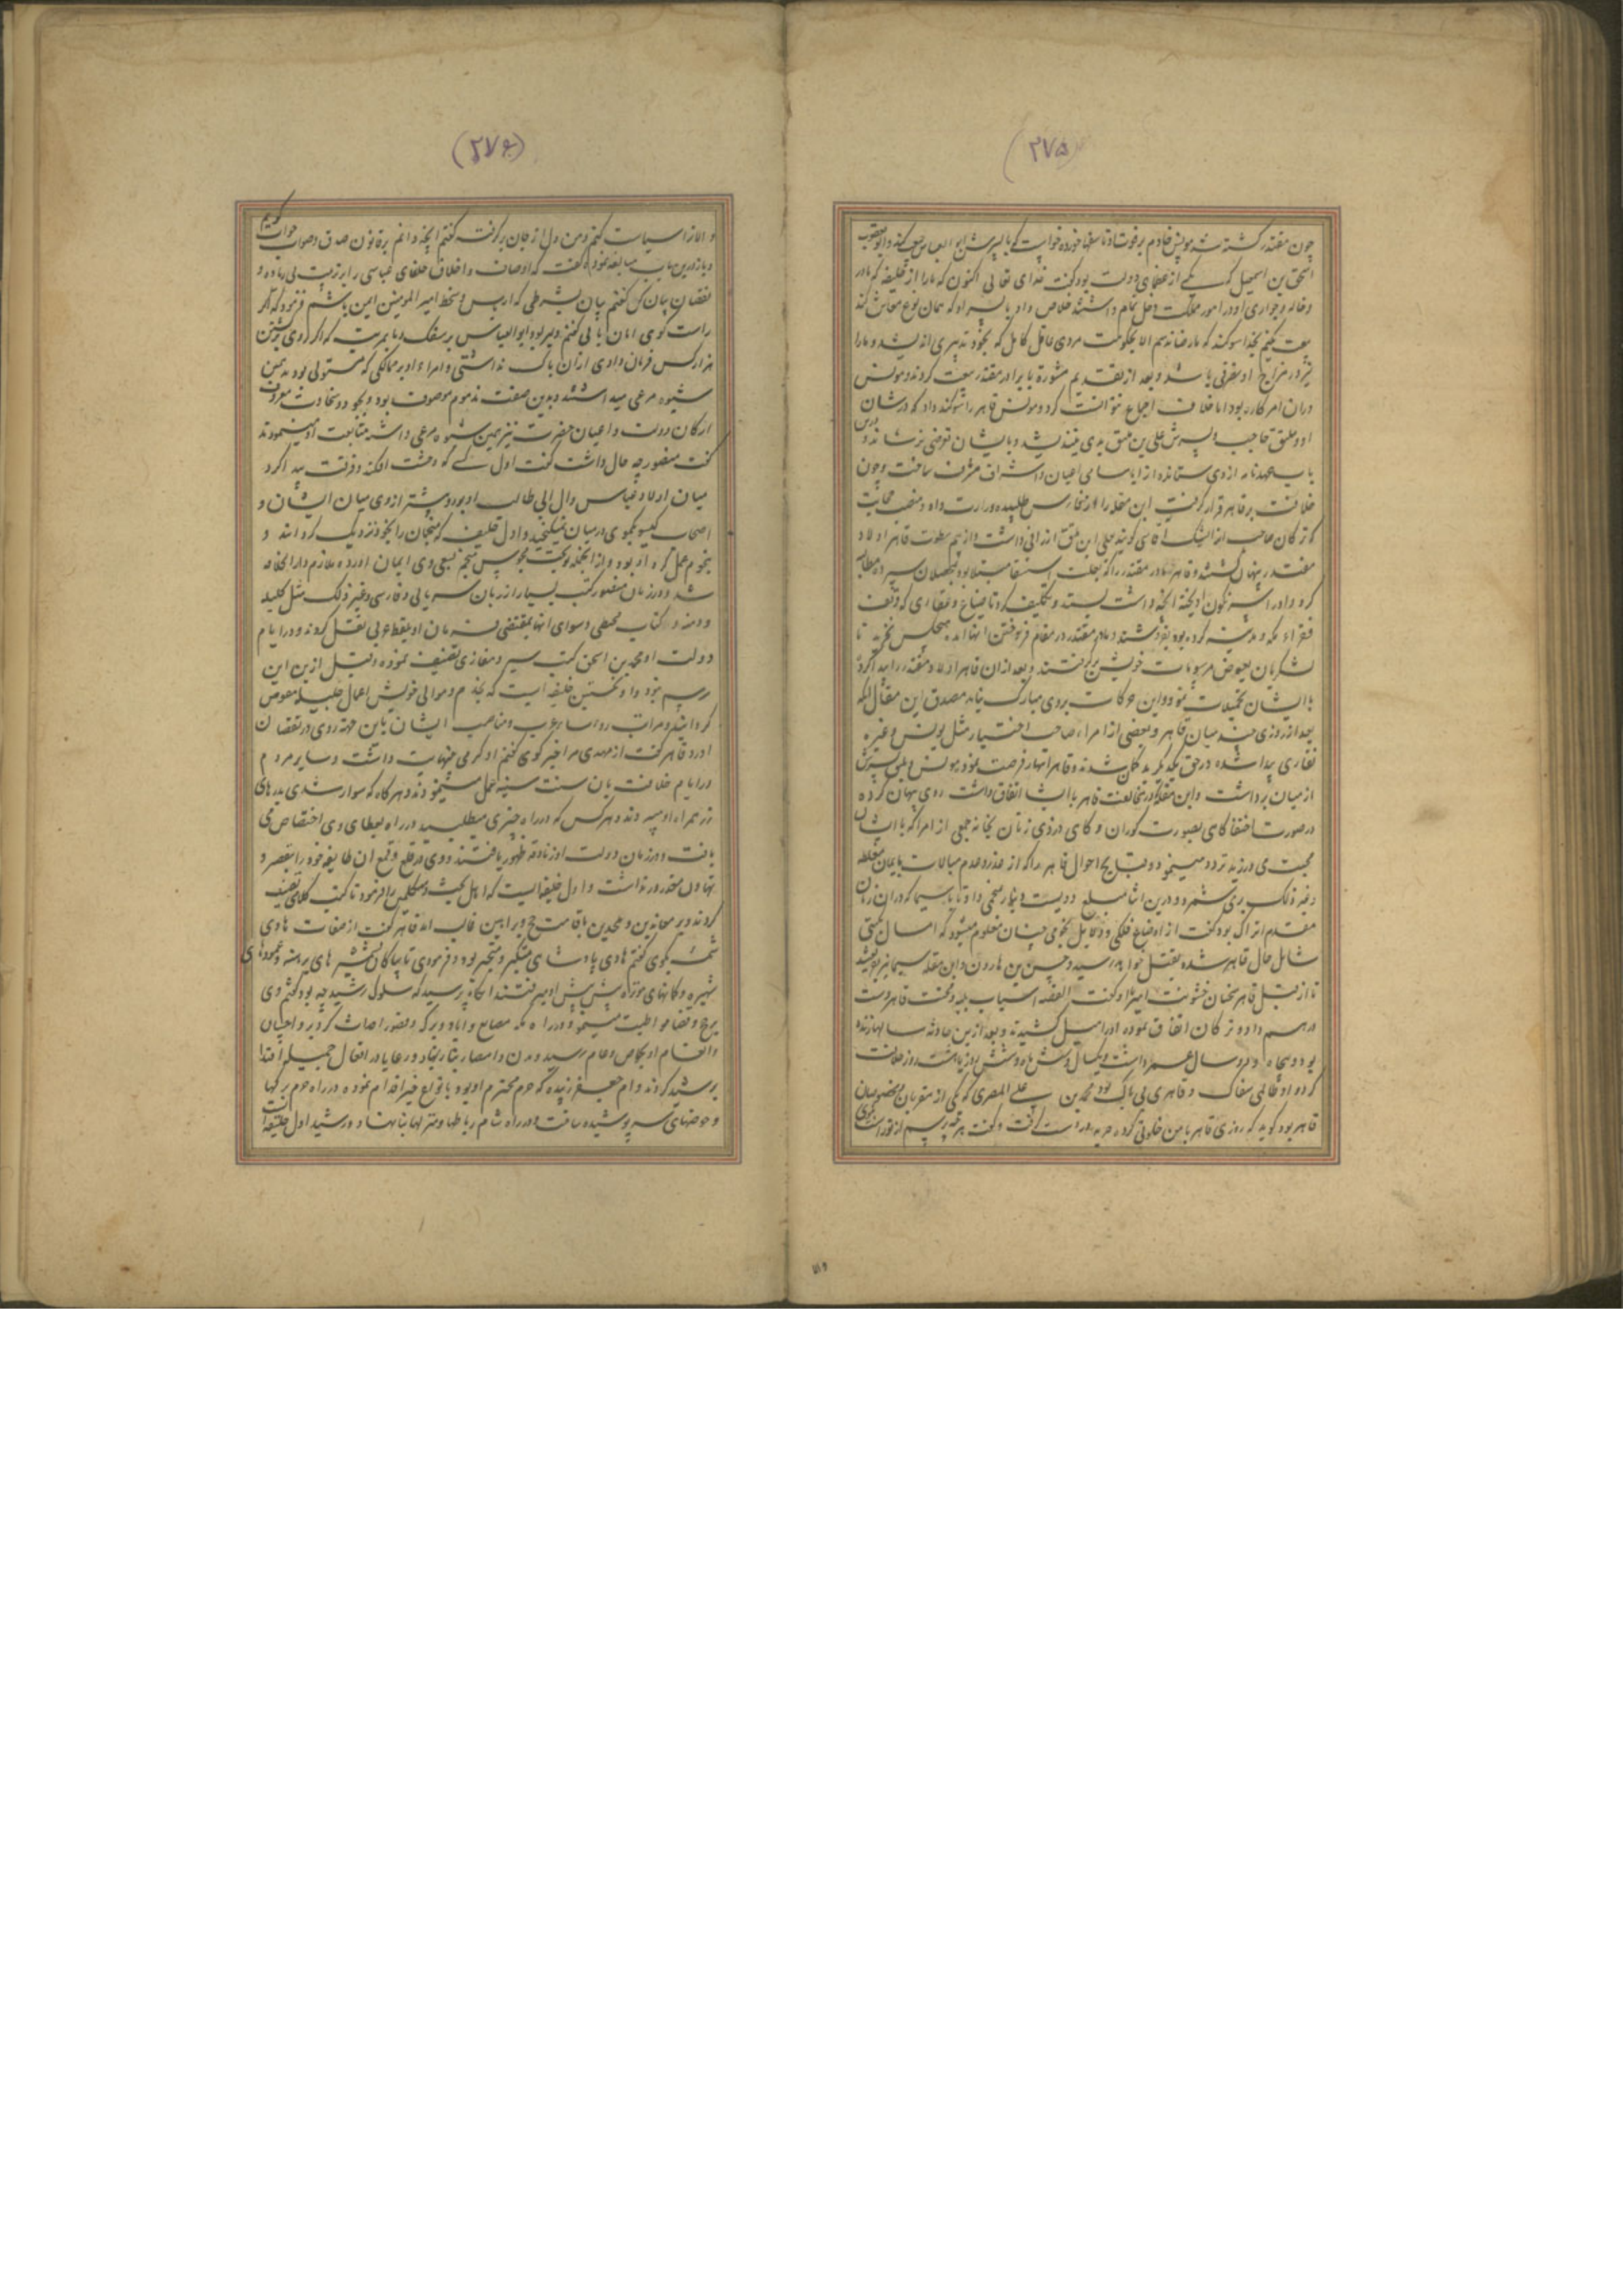 (۲۷۵)
چون مقتدر کشته شد مونس خادم بر فوت او تاسفها خورده خواست که با پسرش ابو العباس بیعت کند و ابو یعقوب
اسحق بن اسمعیل که یکی از عظمای دولت بود کفت خدای تعالی اکنون که مارا از خلیفه که مادر
و خاله و جواری او در امور مملکت دخل تمام داشتند خلاص داد با پسر او که همان نوع معاش کند
بیعت نکنیم بخدا سوکند که ما رضا ندهیم الا بحکومت مردی عاقل کامل که بخود تدبیری اندیشد و مارا
نیز در مزاج او تصرفی باشد و بعد از تقدیم مشورة با برادر مقتدر بیعت کردند و مونس
دران امر کاره بود اما خلاف اجماع نتوانست کرد و مونس قاهر را سوکند داد که در شان
او و بلیق حاجب و پسرش علی بن بلیق بدی نیندیشد و بایشان تعرضی نرساند و
خلافت بر قاهر قرار کرفت ابن مقله را از فارس طلبیده وزارت داد و منصب حجابت
که ترکان صاحب انرا ایشک آقاسی کویند بعلی ابن بلیق ارزانی داشت و از بیم سطوت قاهر اولاد
مقتدر پنهان کشتند و قاهر مادر مقتدر را که بعلت استسقا مبتلا بود
کرد و او را سرنکون اویخته انچه داشت بستد و تکلیف کرد تا ضیاع و عقاری که وقف
فقراء مکه و مدینه کرده بود بفروشند و مادر مقتدر در مقام فروختن انها امد هیچکس نخرید تا
لشکریان بعوض مرسومات خویش برکرفتند و بعد از ان قاهر اولاد مقتدر را پیدا کرد
با ایشان نمود و این حرکات بر وی مبارک نیامد مصدق این مقال انکه
بعد از روزی چند میان قاهر و بعضی از امراء صاحب اختیار مثل مونس و غیره
نقاری پیدا شده در حق یکدیکر بد کمان شدند و قاهر انتهاز فرصت نمود مونس و بلیق و پسرش
از میان برداشت و ابن مقله که در مخالفت قاهر با ایشان اتفاق داشت روی پنهان کرده
در صورت اختفا کاهی بصورت کوران و کاهی در زی زنان بخانه جمعی از امرا که با ایشان
محبت می ورزید تردد مینمود و قبایح احوال قاهر را که از غدر و عدم مبالات بایمان مغلظه
و غیر ذلک بر می شمرد و درین اثنا مبلغ دویست دینار بمنجمی داد تا با سیما که دران زمان
مقدم اتراک بود کفت از اوضاع فلکی و دلایل نجومی چنان معلوم میشود که امسال نکبتی
شامل حال قاهر شده بقتل خواهد رسید و حسن بن هارون و ابن مقله سیما را
تا از قبل قاهر سخنان خشونت امیز با او کفت القصه اسباب نکبت قاهر دست
درهم داد و ترکان اتفاق نموده او را میل کشیدند و بعد ازین حادثه سالها زنده
بود و پنجاه و دو سال عمر داشت و یکسال و شش ماه و شش روز یا هشت روز خلافت
کرد و او قتالی سفاک و قاهری بی باک بود محمد بن علی المصری که یکی از مقربان و مخصوصان
قاهر بود کوید که روزی قاهر با من خلوتی کرده حربه در دست کرفت و کفت هرچه پرسم از تو راست بکوی
(۲۷۶)
و الا ترا سیاست کنم و من دل از جان برکرفته کفتم انچه دانم بر قانون صدق و صواب جواب کویم
و باز درین باب مبالغه نموده کفت که اوصاف و اخلاق خلفای عباسی را بترتیب بی زیاده و
نقصان بیان کن کفتم بیان بشرطی که از باس و سخط امیر المومنین ایمن باشم فرمود که اکر
راست کوی امان یابی کفتم دلیر بود ابو العباس بر سفک دما بمرتبه که اکر روی
هزار کس فرمان دادی ازان باک نداشتی و امراء او بر ممالکی که مستولی بودند همین
شیوه مرعی میداشتند و بدین صفت مذموم موصوف بود و بجود و سخاوت معروف
ارکان دولت و اعیان حضرت نیز همین شیوه مرعی داشته متابعت او مینمودند
کفت منصور چه حال داشت کفت اول کسی که وحشت افکند و فرقت پیدا کرد
میان اولاد عباس و ال ابی طالب او بود و پیشتر از وی میان ایشان و
اصحاب کیسو یکموی در میان نمیکنجید و اول خلیفه که منجمان را بخود نزدیک کرداند و
بنجوم عمل کرد او بود و از انجمله نوبخت مجوسی منجم بسعی وی ایمان اورده ملازم دار الخلافه
شد و در زمان منصور کتب بسیار از زبان سریانی و فارسی و غیر ذلک مثل کلیله
و دمنه و کتاب مجسطی و سوای انها بمقتضی فرمان او بلفظ عربی نقل کردند و در ایام
دولت او محمد بن اسحق کتب سیر و مغازی تصنیف نموده و قبل ازین این
رسم نبود و او نخستین خلیفه ایست که بخدم و موالی خویش اعمال جلیله مفوض
کردانید و مراتب روسا عرب و مناصب ایشان باین جهة روی در نقصان
اورد قاهر کفت از مهدی مرا خبر کوی کفتم او کرمی بنهایت داشت و سایر مردم
در ایام خلافت بان سنت سنیه عمل مینمودند و هر کاه که سوار شدی بدرهای
زر همراه او میبردند و هر کس که در راه چیزی میطلبید در راه بعطای وی اختصاص می
یافت و در زمان دولت او زنادقه ظهور یافتند و وی در قلع و قمع ان طایفه خود را بتقصیر و
تهاون معذور نداشت و اول خلیفه ایست که اهل بحث و متکلمین را فرمود تا کتب کلامی تصنیف
کردند و بر معاندین و ملحدین باقامت حجج و براهین غالب امد قاهر کفت از صفات هادی
شمه بکوی کفتم هادی پادشاهی متکبر و متجبر بود و فرمودی تا پیادکان شمشیر های برهنه و عمودهای
شهره و کمانهای موتره پیش پیش او میرفتند انکاه پرسید که سلوک رشید چه بود کفتم وی
بحج و غزا مواظبت مینمود و در راه مکه مصانع و ابار و برکه و قصور احداث کرد و احسان
و انعام او بخاص و عام رسید و مدن و امصار بنیاد نهاد و رعایا در افعال جمیله اقتدا
برشید کردند و ام جعفر زبیده که حرم محترم او بود بانواع خیر اقدام نموده در راه حرم برکها
و حوضهای سر پوشیده ساخت و در راه شام رباطها و منزلها بنا نهاد و رشید اول خلیفه است